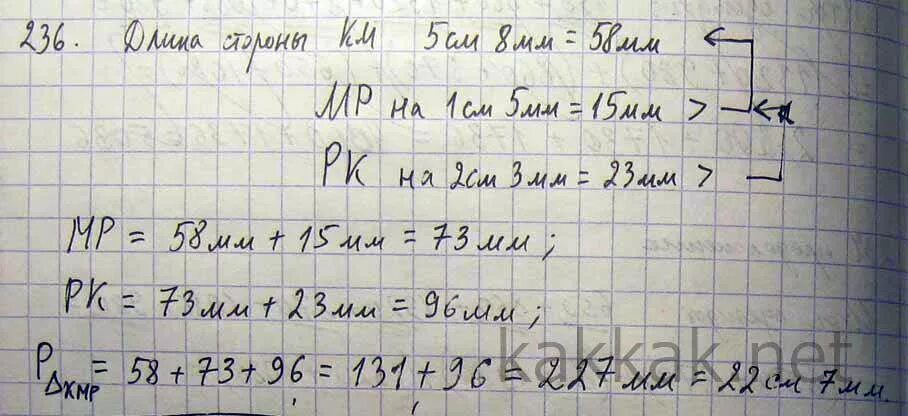 236. Длина стороны КМ 5см 8мм = 58мм
МР на 1см 5мм = 15мм >
РК на 2см 3мм = 23мм >
МР = 58мм + 15мм = 73мм;
РК = 73мм + 23мм = 96мм;
P△KMP = 58 + 73 + 96 = 131 + 96 = 227мм = 22см 7мм.
kakkak.net